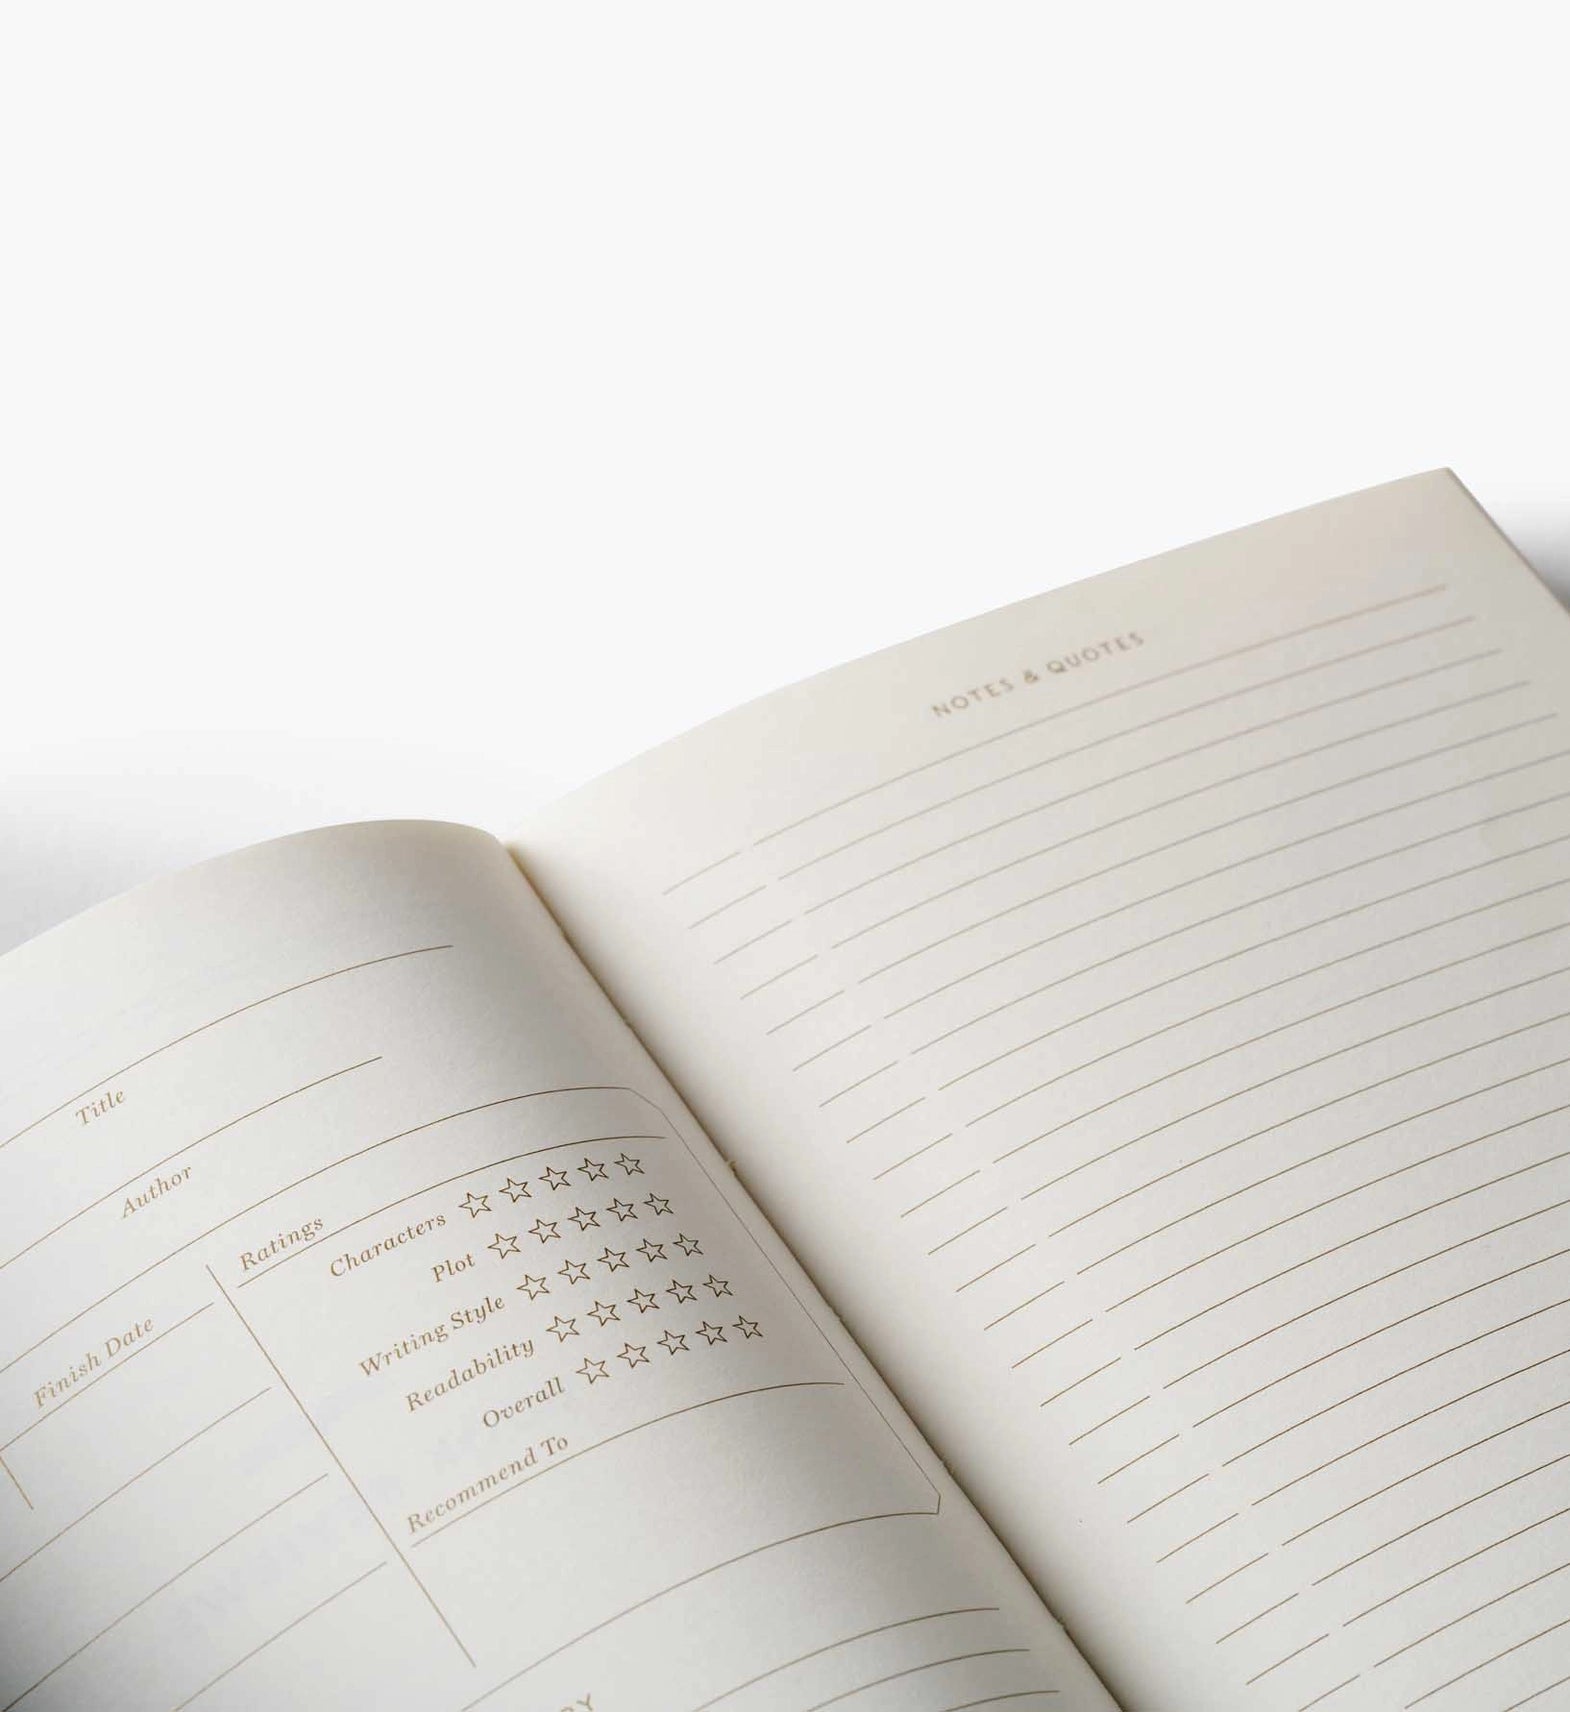 Title
Author
Finish Date
Ratings
Characters
Plot
Writing Style
Readability
Overall
Recommend To
NOTES & QUOTES